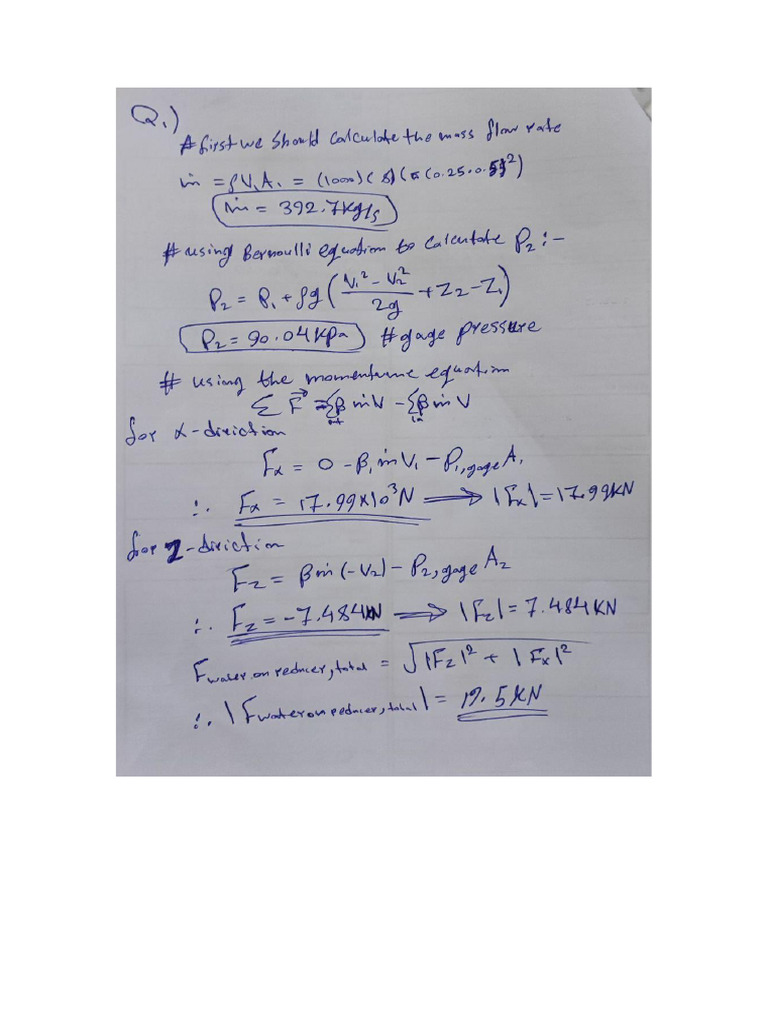 Q1)
# first we should calculate the mass flow rate
ṁ = ρV₁A₁ = (1000)(5)(π(0.25·0.5)²)
ṁ = 392.7kg/s
# using Bernoulli equation to calculate P₂:-
P₂ = P₁ + ρg(V₁² - V₂² / 2g + Z₂ - Z₁)
P₂ = 90.04 kPa # gage pressure
# using the momentume equation
ΣF⃗ = Σ_out βṁV - Σ_in βṁV
for x-diriction
Fx = 0 - β₁ṁV₁ - P₁,gage A₁
∴ Fx = 17.99×10³N ⟹ |Fx| = 17.99KN
for Z-diriction
Fz = βṁ(-V₂) - P₂,gage A₂
∴ Fz = -7.484KN ⟹ |Fz| = 7.484KN
F water on reducer, total = √|Fz|² + |Fx|²
∴ |F water on reducer, total| = 19.5KN